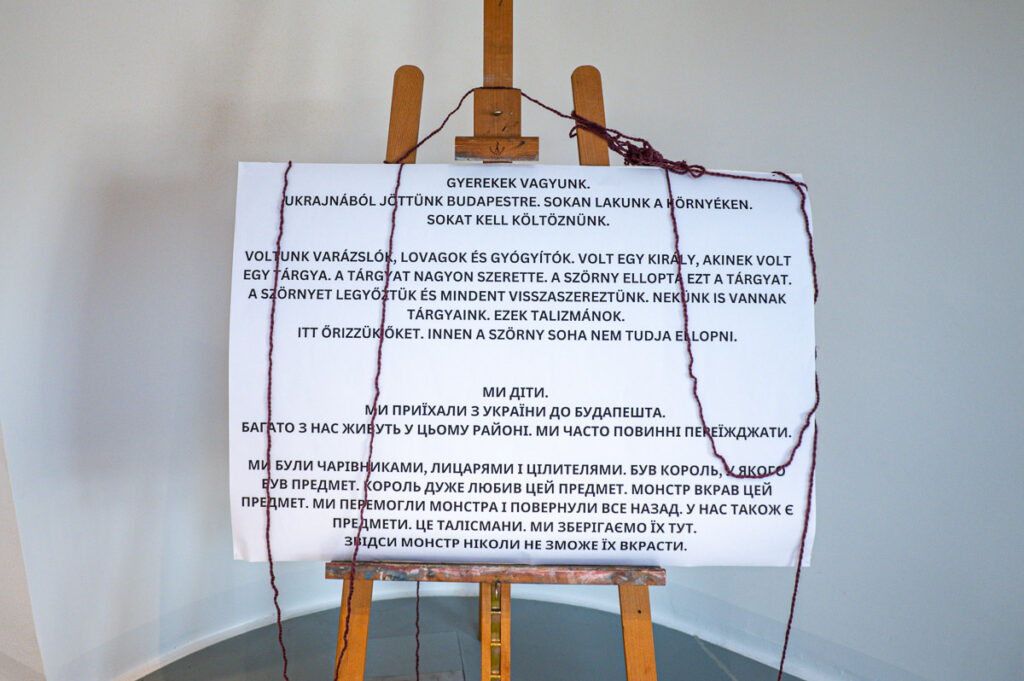 GYEREKEK VAGYUNK.
UKRAJNÁBÓL JÖTTÜNK BUDAPESTRE. SOKAN LAKUNK A KÖRNYÉKEN.
SOKAT KELL KÖLTÖZNÜNK.
VOLTUNK VARÁZSLÓK, LOVAGOK ÉS GYÓGYÍTÓK. VOLT EGY KIRÁLY, AKINEK VOLT
EGY TÁRGYA. A TÁRGYAT NAGYON SZERETTE. A SZÖRNY ELLOPTA EZT A TÁRGYAT.
A SZÖRNYET LEGYŐZTÜK ÉS MINDENT VISSZASZEREZTÜNK. NEKÜNK IS VANNAK
TÁRGYAINK. EZEK TALIZMÁNOK.
ITT ŐRIZZÜK ŐKET. INNEN A SZÖRNY SOHA NEM TUDJA ELLOPNI.
МИ ДІТИ.
МИ ПРИЇХАЛИ З УКРАЇНИ ДО БУДАПЕШТА.
БАГАТО З НАС ЖИВУТЬ У ЦЬОМУ РАЙОНІ. МИ ЧАСТО ПОВИННІ ПЕРЕЇЖДЖАТИ.
МИ БУЛИ ЧАРІВНИКАМИ, ЛИЦАРЯМИ І ЦІЛИТЕЛЯМИ. БУВ КОРОЛЬ, У ЯКОГО
БУВ ПРЕДМЕТ. КОРОЛЬ ДУЖЕ ЛЮБИВ ЦЕЙ ПРЕДМЕТ. МОНСТР ВКРАВ ЦЕЙ
ПРЕДМЕТ. МИ ПЕРЕМОГЛИ МОНСТРА І ПОВЕРНУЛИ ВСЕ НАЗАД. У НАС ТАКОЖ Є
ПРЕДМЕТИ. ЦЕ ТАЛІСМАНИ. МИ ЗБЕРІГАЄМО ЇХ ТУТ.
ЗВІДСИ МОНСТР НІКОЛИ НЕ ЗМОЖЕ ЇХ ВКРАСТИ.